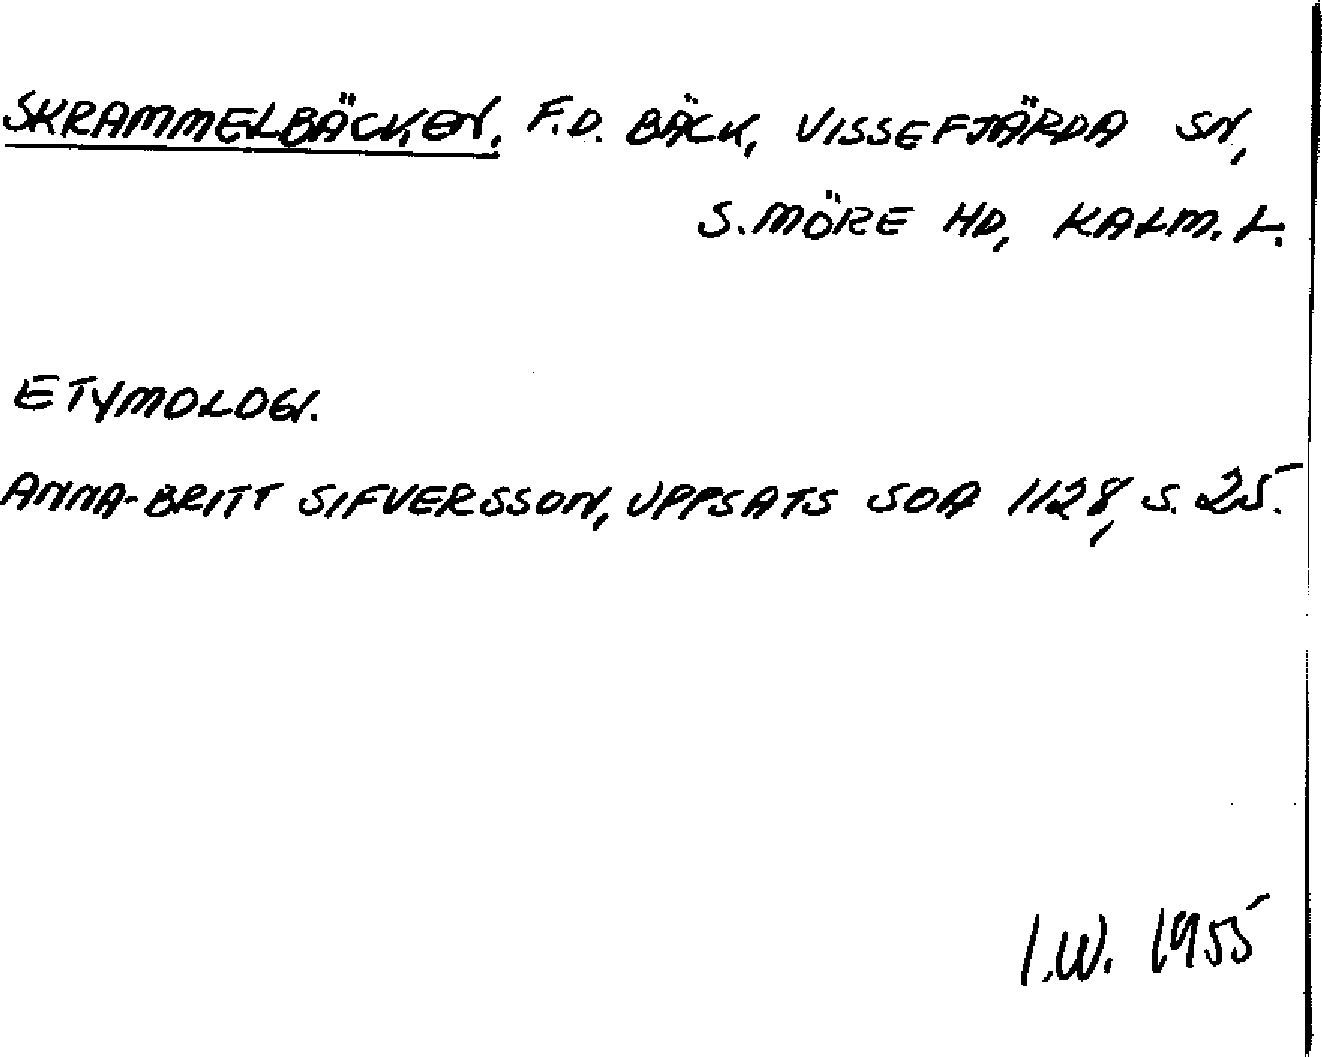 SKRAMMELBÄCKEN, F.D. BÄCK, VISSEFJÄRDA SN,
S. MÖRE HD, KALM. L.
ETYMOLOGI.
ANNA-BRITT SIFVERSSON, UPPSATS SOA 1128, S. 25.
I.W. 1955